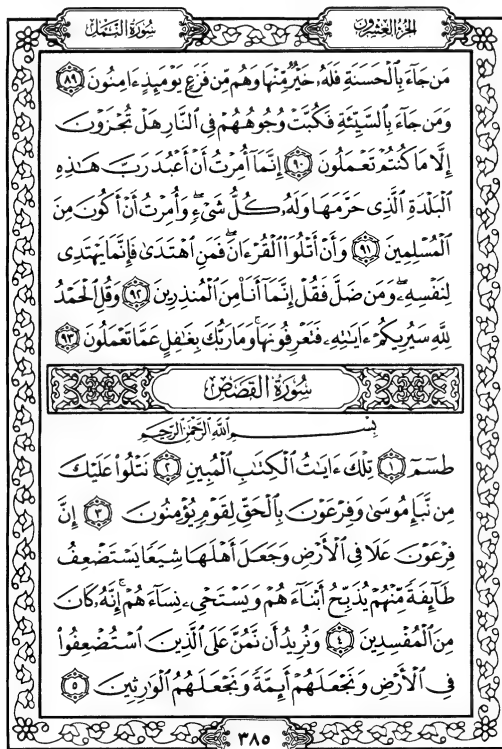 الجزء العشرون
سورة النمل
مَن جَآءَ بِالْحَسَنَةِ فَلَهُۥ خَيْرٌ مِّنْهَا وَهُم مِّن فَزَعٍ يَوْمَئِذٍ ءَامِنُونَ ٨٩
وَمَن جَآءَ بِالسَّيِّئَةِ فَكُبَّتْ وُجُوهُهُمْ فِي النَّارِ هَلْ تُجْزَوْنَ
إِلَّا مَا كُنتُمْ تَعْمَلُونَ ٩٠ إِنَّمَآ أُمِرْتُ أَنْ أَعْبُدَ رَبَّ هَٰذِهِ
الْبَلْدَةِ الَّذِي حَرَّمَهَا وَلَهُۥ كُلُّ شَيْءٍ وَأُمِرْتُ أَنْ أَكُونَ مِنَ
الْمُسْلِمِينَ ٩١ وَأَنْ أَتْلُوَا۟ الْقُرْءَانَ فَمَنِ اهْتَدَىٰ فَإِنَّمَا يَهْتَدِي
لِنَفْسِهِۦ وَمَن ضَلَّ فَقُلْ إِنَّمَآ أَنَا۠ مِنَ الْمُنذِرِينَ ٩٢ وَقُلِ الْحَمْدُ
لِلَّهِ سَيُرِيكُمْ ءَايَٰتِهِۦ فَتَعْرِفُونَهَا وَمَا رَبُّكَ بِغَٰفِلٍ عَمَّا تَعْمَلُونَ ٩٣
سورة القصص
بِسْمِ اللَّهِ الرَّحْمَٰنِ الرَّحِيمِ
طسٓمٓ ١ تِلْكَ ءَايَٰتُ الْكِتَٰبِ الْمُبِينِ ٢ نَتْلُوا۟ عَلَيْكَ
مِن نَّبَإِ مُوسَىٰ وَفِرْعَوْنَ بِالْحَقِّ لِقَوْمٍ يُؤْمِنُونَ ٣ إِنَّ
فِرْعَوْنَ عَلَا فِي الْأَرْضِ وَجَعَلَ أَهْلَهَا شِيَعًا يَسْتَضْعِفُ
طَآئِفَةً مِّنْهُمْ يُذَبِّحُ أَبْنَآءَهُمْ وَيَسْتَحْيِۦ نِسَآءَهُمْ إِنَّهُۥ كَانَ
مِنَ الْمُفْسِدِينَ ٤ وَنُرِيدُ أَن نَّمُنَّ عَلَى الَّذِينَ اسْتُضْعِفُوا۟
فِي الْأَرْضِ وَنَجْعَلَهُمْ أَئِمَّةً وَنَجْعَلَهُمُ الْوَٰرِثِينَ ٥
٣٨٥